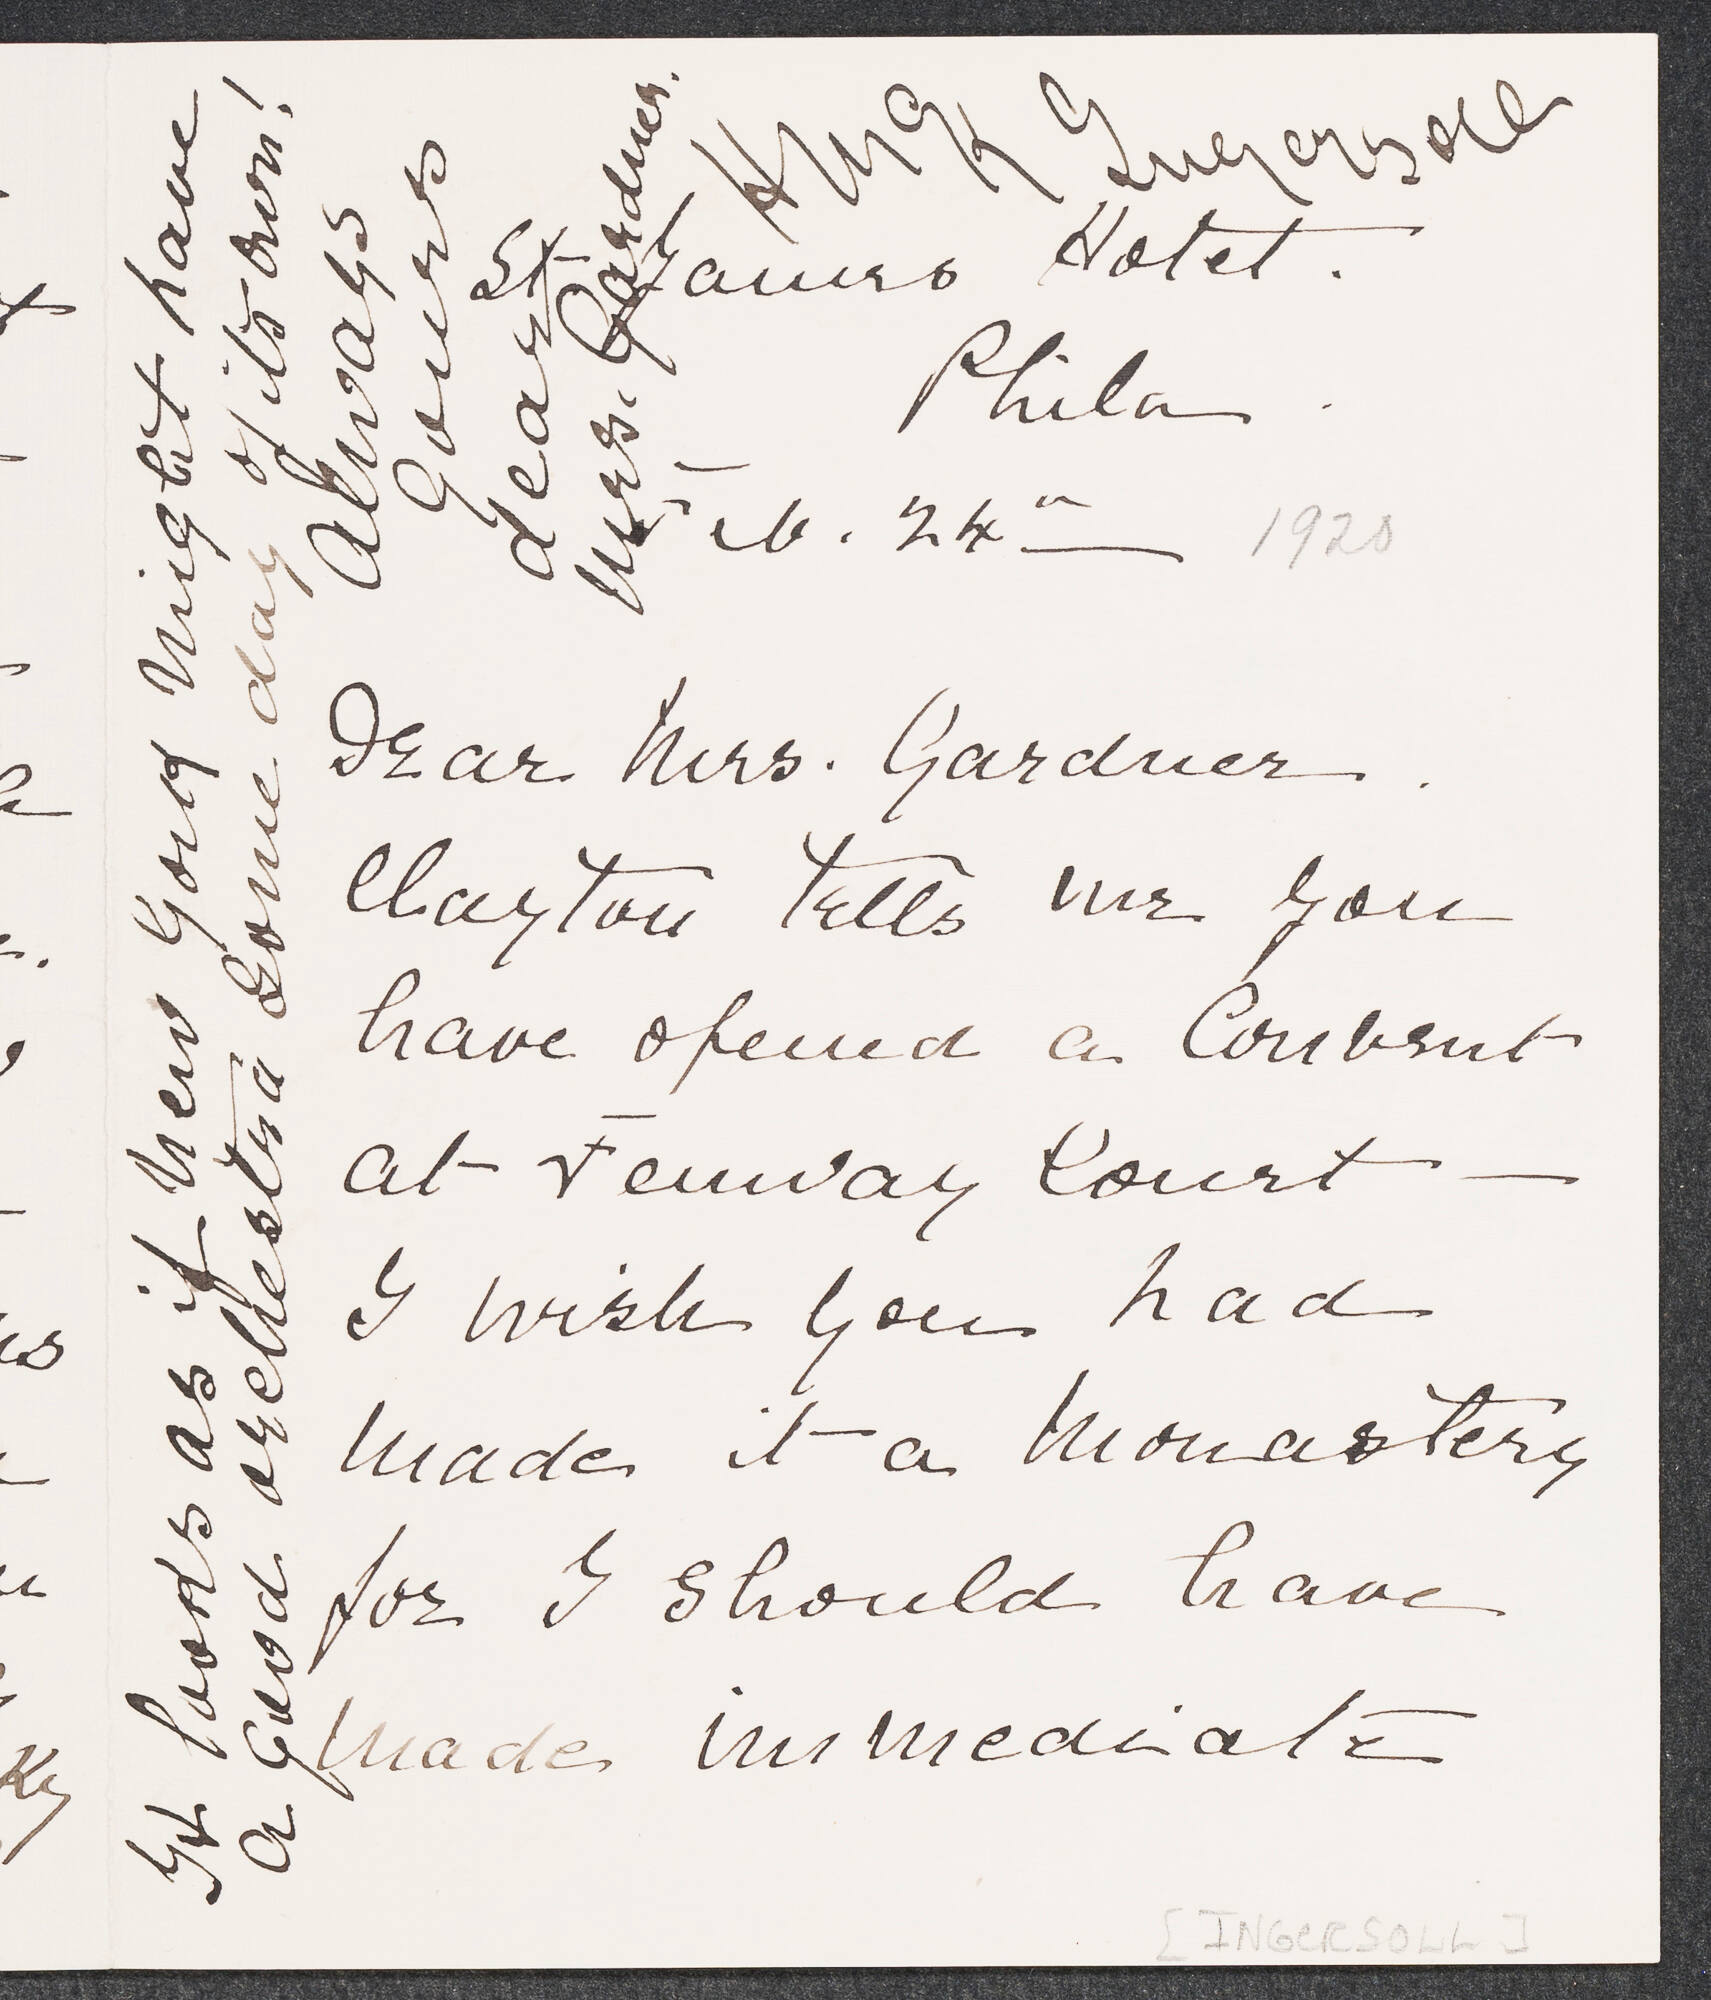 St. James Hotel.
Phila.
Feb. 24th
1920
Dear Mrs. Gardner.
Clayton tells me you
have opened a Convent
at Fenway Court —
I wish you had
made it a Monastery
for I should have
made immediate
It looks as if New York might have
a good orchestra some day of its own!
Always
Yours
dear
Mrs. Gardner.
Ingersoll
[INGERSOLL]